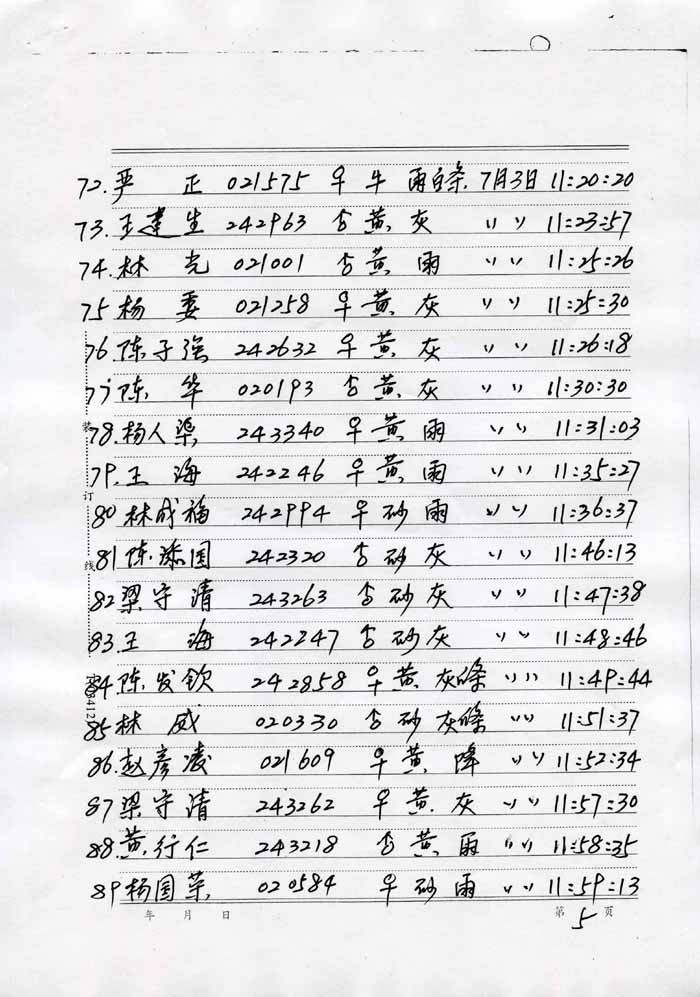 72. 严正 021575 ♀ 牛 雨白条. 7月3日 11:20:20
73. 王建生 242963 ♂ 黄 灰 〃 11:23:57
74. 林光 021001 ♂ 黄 雨 〃 11:25:26
75 杨委 021258 ♀ 黄 灰 〃 11:25:30
76. 陈子强 242632 ♀ 黄 灰 〃 11:26:18
77 陈华 020193 ♂ 黄 灰 〃 11:30:30
78. 杨人渠 243340 ♀ 黄 雨 〃 11:31:03
79. 王海 242246 ♀ 黄 雨 〃 11:35:27
80 林成福 242994 ♀ 砂 雨 〃 11:36:37
81 陈添国 242320 ♂ 砂 灰 〃 11:46:13
82 梁守清 243263 ♂ 砂 灰 〃 11:47:38
83. 王海 242247 ♂ 砂 灰 〃 11:48:46
84. 陈发钦 242858 ♀ 黄 灰條 〃 11:49:44
85 林威 020330 ♂ 砂 灰條 〃 11:51:37
86. 赵彦凌 021609 ♀ 黄 降 〃 11:52:34
87 梁守清 243262 ♀ 黄 灰 〃 11:57:30
88. 黄行仁 243218 ♂ 黄 雨 〃 11:58:35
89 杨国荣 020584 ♀ 砂 雨 〃 11:59:13
装订线
年 月 日 第 5 页